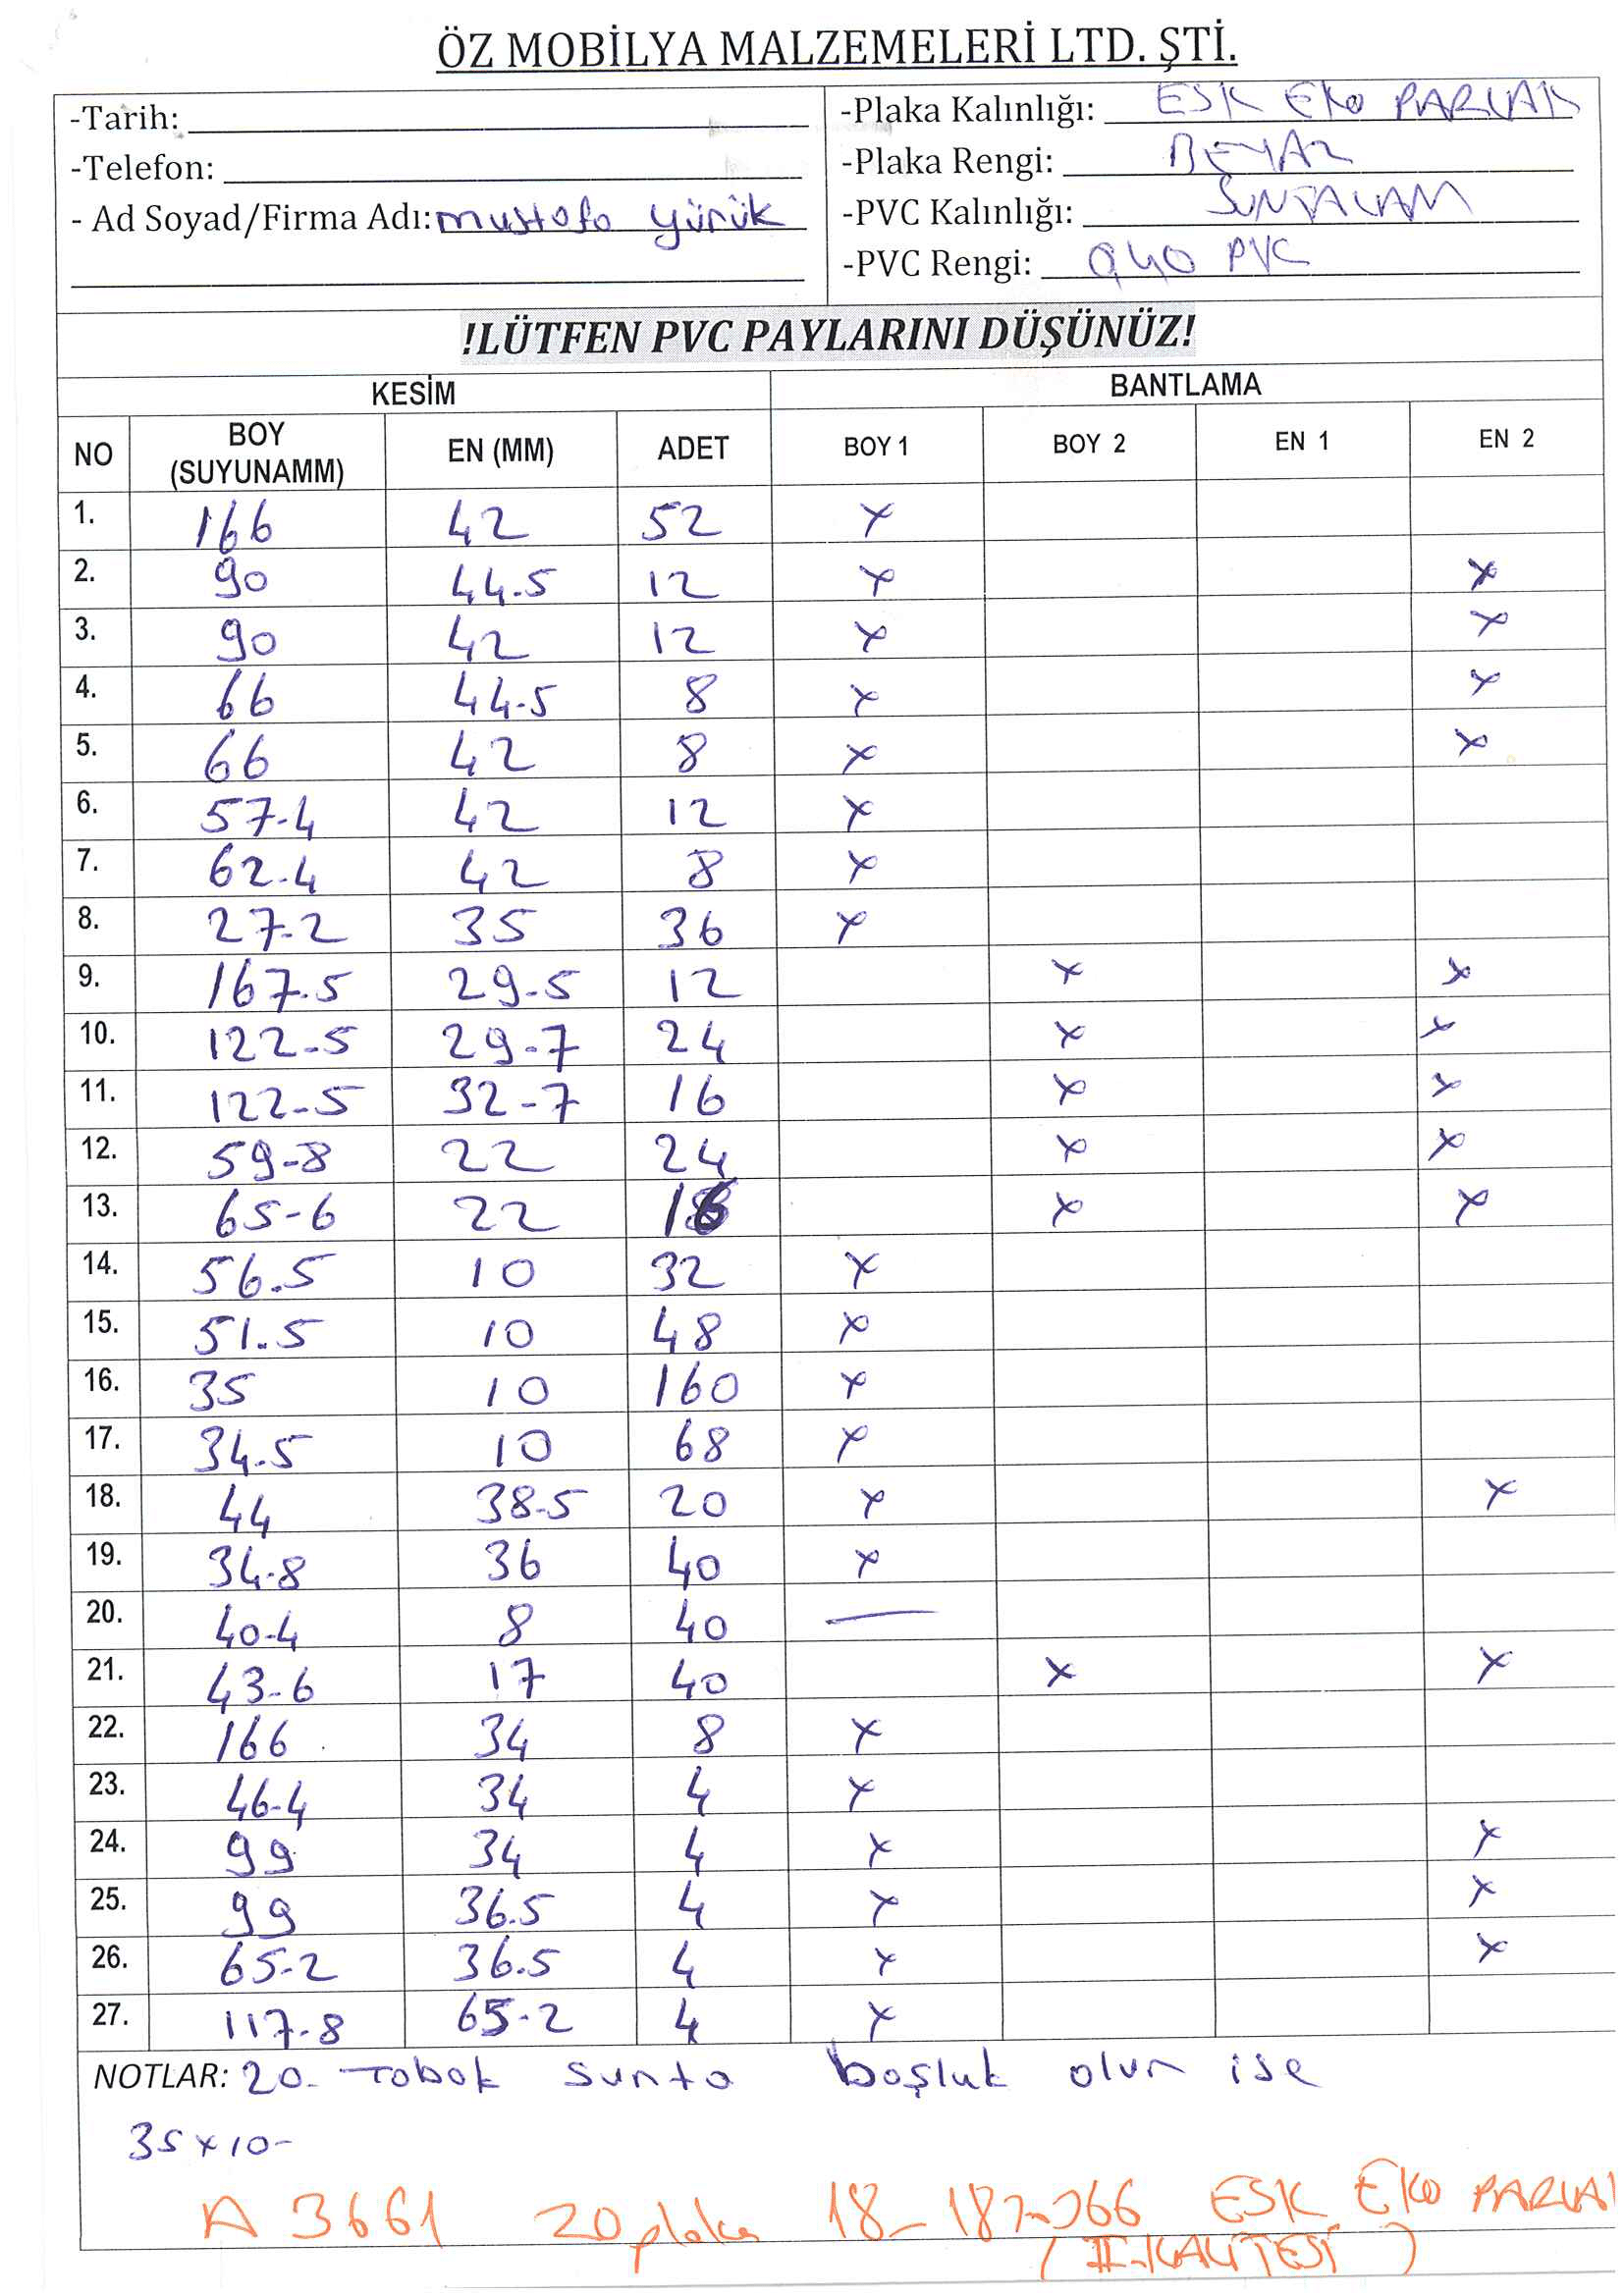 ÖZ MOBİLYA MALZEMELERİ LTD. ŞTİ.
-Tarih:
-Telefon:
- Ad Soyad/Firma Adı: mustafa yürük
-Plaka Kalınlığı: ESK EKO PARLAK
-Plaka Rengi: BEYAZ
-PVC Kalınlığı: SUNTALAM
-PVC Rengi: 0,40 PVC
!LÜTFEN PVC PAYLARINI DÜŞÜNÜZ!
KESİM BANTLAMA
NO BOY (SUYUNAMM) EN (MM) ADET BOY 1 BOY 2 EN 1 EN 2
1. 166 42 52 x
2. 90 44.5 12 x x
3. 90 42 12 x x
4. 66 44-5 8 x x
5. 66 42 8 x x
6. 57-4 42 12 x
7. 62-4 42 8 x
8. 27-2 35 36 x
9. 167.5 29-5 12 x x
10. 122-5 29-7 24 x x
11. 122-5 32-7 16 x x
12. 59-8 22 24 x x
13. 65-6 22 16 x x
14. 56.5 10 32 x
15. 51.5 10 48 x
16. 35 10 160 x
17. 34.5 10 68 x
18. 44 38-5 20 x x
19. 34-8 36 40 x
20. 40-4 8 40 —
21. 43-6 17 40 x x
22. 166 34 8 x
23. 46-4 34 4 x
24. 99 34 4 x x
25. 99 36.5 4 x x
26. 65-2 36.5 4 x x
27. 117-8 65-2 4 x
NOTLAR: 20. Tabak sunta boşluk olur ise
35x10-
A 3661 20 plaka 18-187-366 ESK EKO PARLA
(II. KALİTESİ)